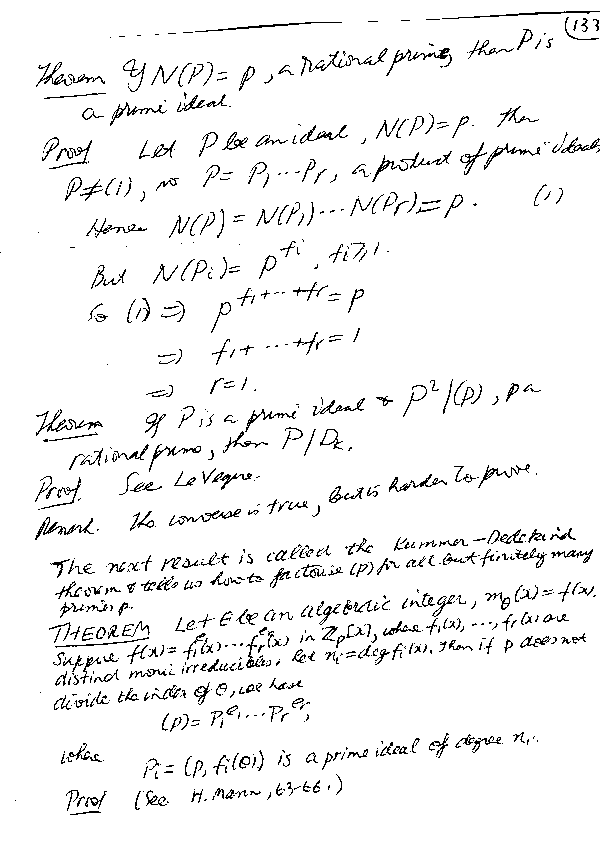 133
Theorem If N(P) = p, a rational prime, then P is
a prime ideal.
Proof Let P be an ideal, N(P) = p. Then
P≠(1), so P = P1 ... Pr, a product of prime ideals
Hence N(P) = N(P1) ... N(Pr) = p. (1)
But N(Pi) = p^fi, fi ≥ 1.
So (1) ⇒ p^f1+...+fr = p
⇒ f1+ ... +fr = 1
⇒ r = 1.
Theorem If P is a prime ideal & P^2 | (p), p a
rational prime, then P | Dk.
Proof. See LeVeque.
Remark. The converse is true, but is harder to prove.
The next result is called the Kummer-Dedekind
theorem & tells us how to factorise (p) for all but finitely many
primes p.
THEOREM Let θ be an algebraic integer, mθ(x) = f(x).
Suppose f(x) = f1^e1(x) ... fr^er(x) in Zp[x], where f1(x), ..., fr(x) are
distinct monic irreducibles. Let ni = deg fi(x). Then if p does not
divide the index of θ, we have
(p) = P1^e1 ... Pr^er,
where
Pi = (p, fi(θ)) is a prime ideal of degree ni.
Proof (See H. Mann, 63-66.)